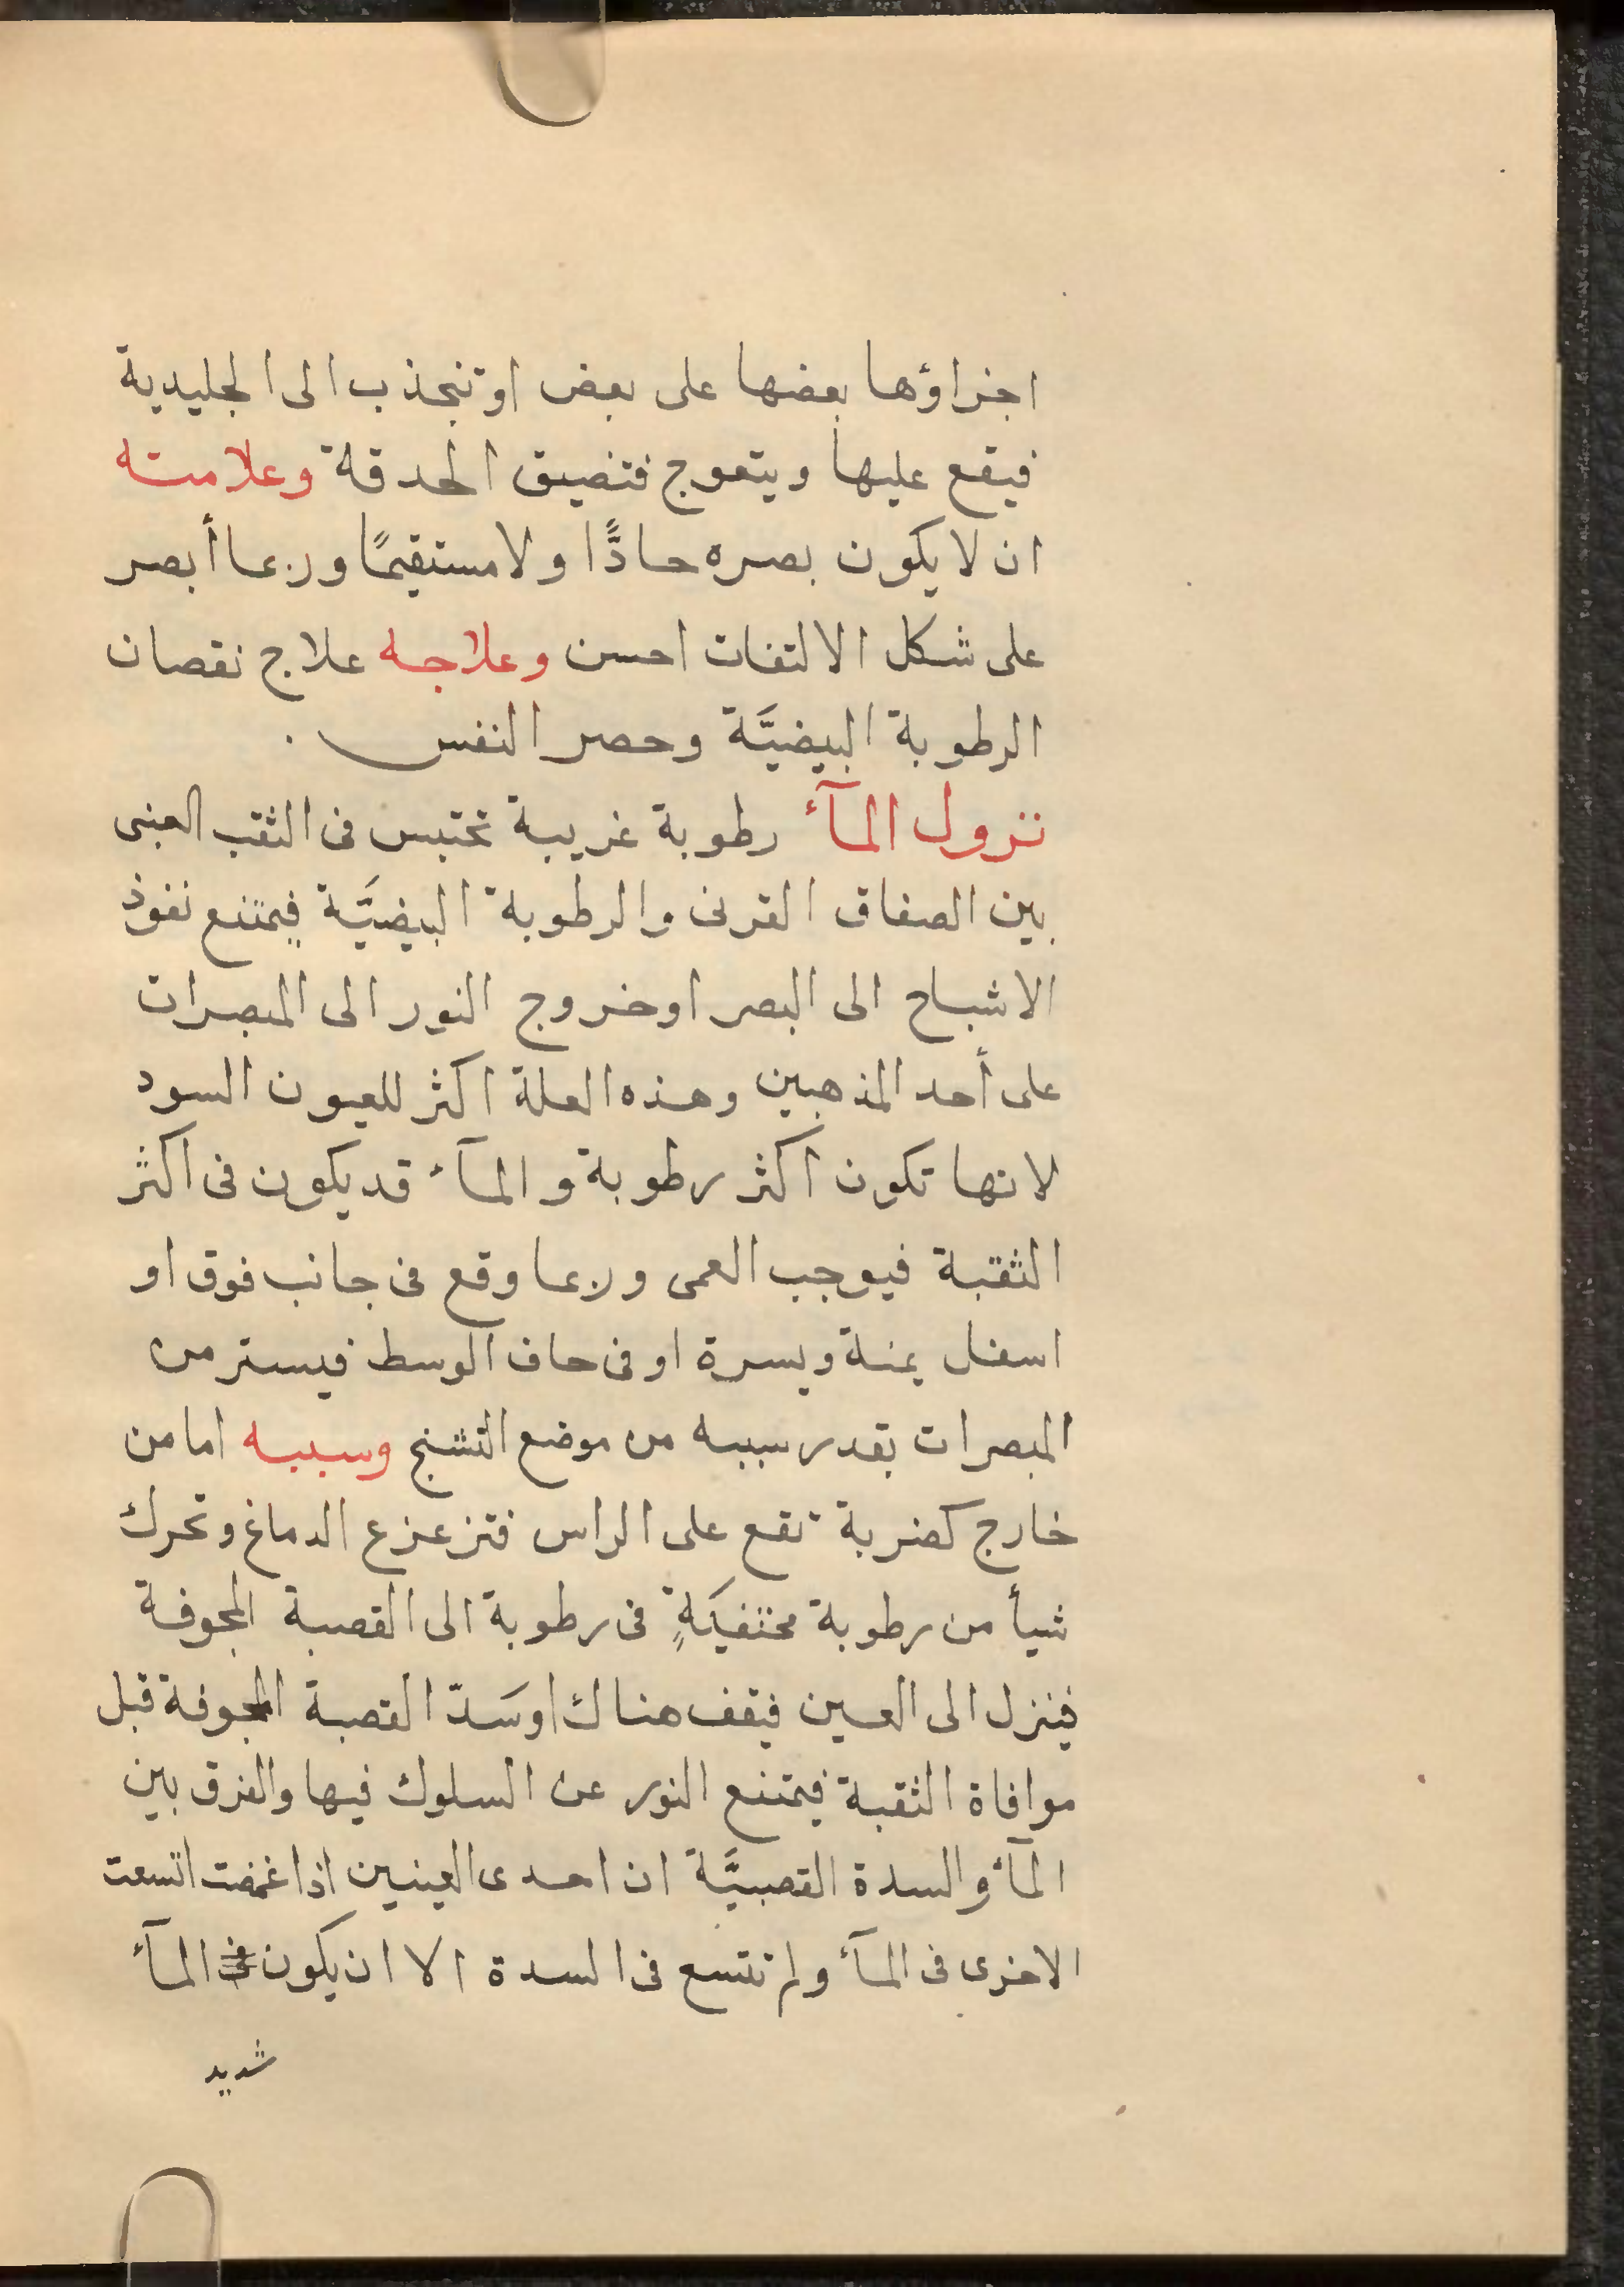 اجزاؤها بعضها على بعض او تنجذب الى الجليدية
فيقع عليها ويتعوج فتضيق الحدقة وعلامته
ان لا يكون بصره حادًّا ولا مستقيمًا وربما أبصر
على شكل الالتفات احسن وعلاجه علاج نقصان
الرطوبة البيضيَّة وحصر النفس .
نزول المآء رطوبة غريبة تحتبس فى الثقب العنبى
بين الصفاق القرنى والرطوبة البيضيَّة فيمتنع نفوذ
الاشباح الى البصر او خروج النور الى المبصرات
على أحد المذهبين وهذه العلة اكثر للعيون السود
لانها تكون اكثر رطوبة والمآء قد يكون فى اكثر
الثقبة فيوجب العمى وربما وقع فى جانب فوق او
اسفل يمنة ويسرة او فى حاف الوسط فيستر من
المبصرات بقدر سببه من موضع التشنج وسببه اما من
خارج كضربة تقع على الراس فتزعزع الدماغ وتحرك
شيأ من رطوبة مختفيَةٍ فى رطوبة الى القصبة المجوفة
فينزل الى العين فيقف هناك او سَدّ القصبة المجوفة قبل
موافاة الثقبة فيمتنع النور عن السلوك فيها والفرق بين
المآء والسدة القصبيَّة ان احدى العينين اذا غمضت اتسعت
الاخرى فى المآء ولم تتسع فى السدة الا ان يكون فى المآء
شديد